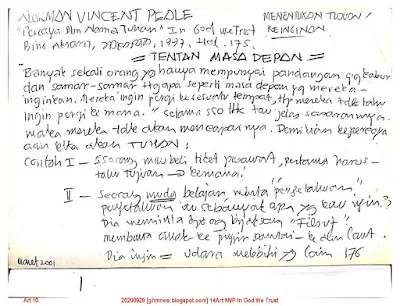 NORMAN VINCENT PEALE
"Percaya Dlm Nama Tuhan" In God We Trust
MENENTUKAN TUJUAN/
KEINGINAN
Bina Aksara, Jakarta, 1997. Hal. 175.
= TENTAN MASA DEPAN =
Banyak sekali orang yg hanya mempunyai pandangan yg kabur
dan samar-samar ttg apa seperti masa depan yg mereka-
inginkan. Mereta ingin pergi ke sesuatu tempat, ttpi mereka tdk tahu
ingin pergi ke mana. "selama sso ttk tau jelas sasarannya.
maka mereka tdk akan mencapainya. Demikian kepercaya
aan kita akan TUHAN:
Contoh I - Sseorang mau beli tiket pesawat, pertama harus-
tahu tujuan → kemana!
II - Seorang muda belajar minta "pengetahuan"
pengetahuan itu sebanyak apa yg kau ingin?
Dia meminta dgn org bijaksana "Filsuf"
membawa anak ke pinggir pantai - ke dlm laut.
Dia ingin = udara melebihi yg lain 176
Maret 2001.
Art 10
20200929 [ghmnew.blogspot.com] 14Art NVP In God We Trust